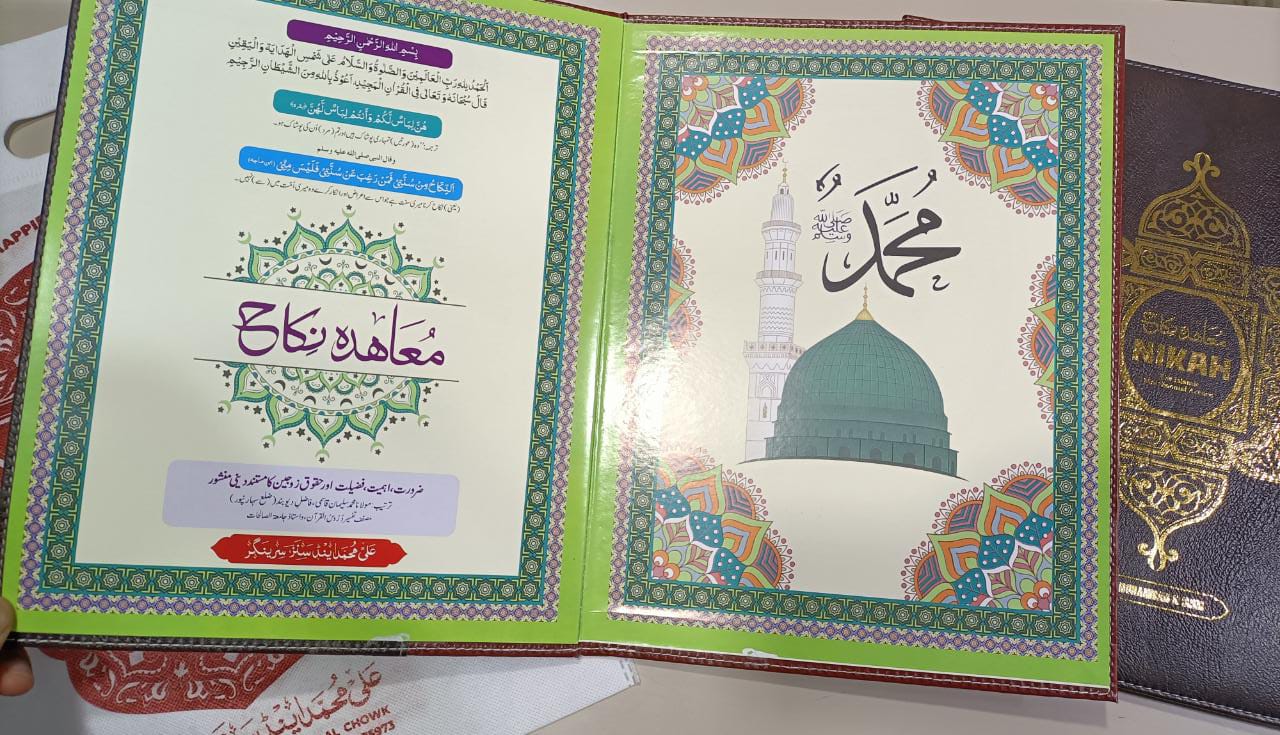 بِسْمِ اللهِ الرَّحْمٰنِ الرَّحِيْمِ
اَلْحَمْدُ لِلهِ رَبِّ الْعَالَمِيْنَ وَالصَّلٰوةُ وَالسَّلَامُ عَلٰى شَمْسِ الْهِدَايَةِ وَالْيَقِيْنِ
قَالَ سُبْحَانَهٗ وَتَعَالٰى فِى الْقُرْاٰنِ الْمَجِيْدِ، اَعُوْذُ بِاللهِ مِنَ الشَّيْطَانِ الرَّجِيْمِ
هُنَّ لِبَاسٌ لَّكُمْ وَأَنْتُمْ لِبَاسٌ لَّهُنَّ (بقرہ)
ترجمہ: ”وہ (عورتیں) تمہاری پوشاک ہیں اور تم (مرد) اُن کی پوشاک ہو۔
وقال النبی صلی اللہ علیہ وسلم
اَلنِّكَاحُ مِنْ سُنَّتِيْ فَمَنْ رَغِبَ عَنْ سُنَّتِيْ فَلَيْسَ مِنِّيْ (ابن ماجہ)
(یعنی) نکاح کرنا میری سنت ہے جو اس سے اعراض اور انکار کرے وہ میری اُمّت میں (سے) نہیں۔
مُعَاهده نِكاح
ضرورت، اہمیت، فضیلت اور حقوق زوجین کا مستند دینی منشور
ترتیب: مولانا محمد سلیمان قاسمی، فاضل دیوبند (ضلع سہارنپور)
مصنف تفسیر دروس القرآن، واستاذ جامعۃ الصالحات
علی محمد اینڈ سنز سرینگر
مُحَمَّدٌ
صلى الله عليه وسلم
NIKAH
HAPPI
علی محمد اینڈ
AL CHOWK